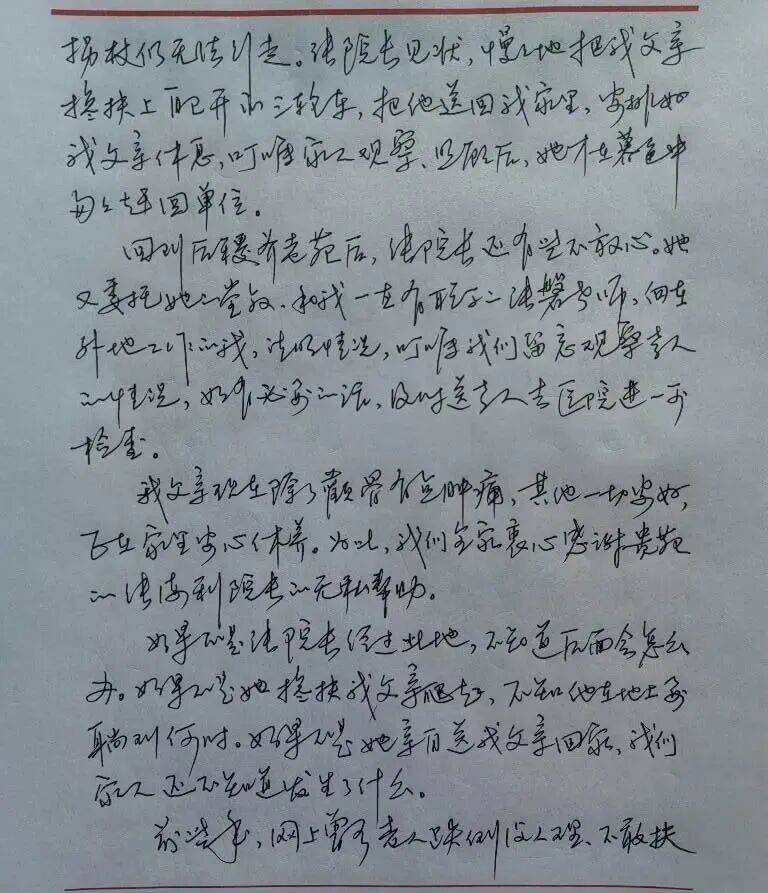 拐杖仍无法行走。张院长见状，慢慢地把我父亲
搀扶上自己开的三轮车，把他送回我家里，安排好
我父亲休息，叮嘱家人观察、照顾后，她才在暮色中
匆匆赶回单位。
回到后 养老苑后，张院长还有些不放心。她
又委托她的堂叔、和我一直有联系的张 老师，电在
外地工作的我，说明情况，叮嘱我们留意观察老人
的情况，如有必要的话，及时送老人去医院进一步
检查。
我父亲现在除了颧骨有点肿痛，其他一切安好，
正在家里安心休养。为此，我们全家衷心感谢贵苑
的张海利院长的无私帮助。
如果不是张院长经过此地，不知道后面会怎么
办。如果不是她搀扶我父亲爬起，不知他在地上要
躺到何时。如果不是她亲自送我父亲回家，我们
家人还不知道发生了什么。
前些年，网上曾有老人跌倒没人理、不敢扶